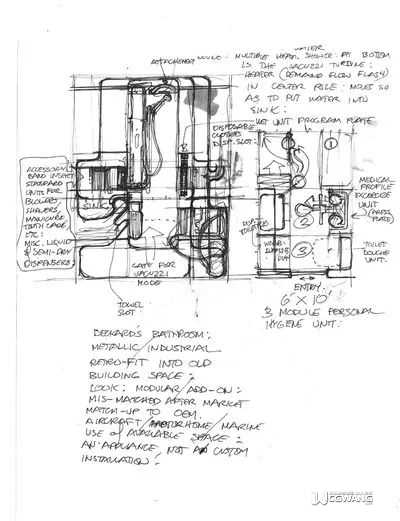 WATER
MULTIPLE HEAD SHOWER: AT BOTTOM
IS THE JACUZZI TURBINE:
HEATER (DEMAND FLOW FLASH)
IN CENTER PILE: MOVES SO
AS TO PUT WATER INTO
SINK:
UNIT PROGRAM PLATE
DISPOSABLE
CLOTHES
DISP. SLOT:
ACCESSORY
BAND INSET
STANDARD
UNITS FOR
BLOWERS,
SHAVERS,
MANICURE
TOOTH CARE,
ETC:
MISC. LIQUID
& SEMI-DRY
DISPENSERS:
SINK
1
2
3
MEDICAL
PROFILE
EXCEEDER
UNIT
(PRESS
PLATE)
TOILET
DOUCHE
UNIT.
GATE FOR
JACUZZI
MODE
TOWEL
SLOT
ENTRY.
6' X 10'
3 MODULE PERSONAL
HYGENE UNIT.
DECKARD'S BATHROOM:
METALLIC INDUSTRIAL
RETRO-FIT INTO OLD
BUILDING SPACE:
LOOK: MODULAR/ADD-ON:
MIS-MATCHED AFTER MARKET
MATCH-UP TO OEM.
AIRCRAFT/MOTORHOME/MARINE
USE of AVAILABLE SPACE:
AN APPLIANCE, NOT A CUSTOM
INSTALLATION:
CGWANG